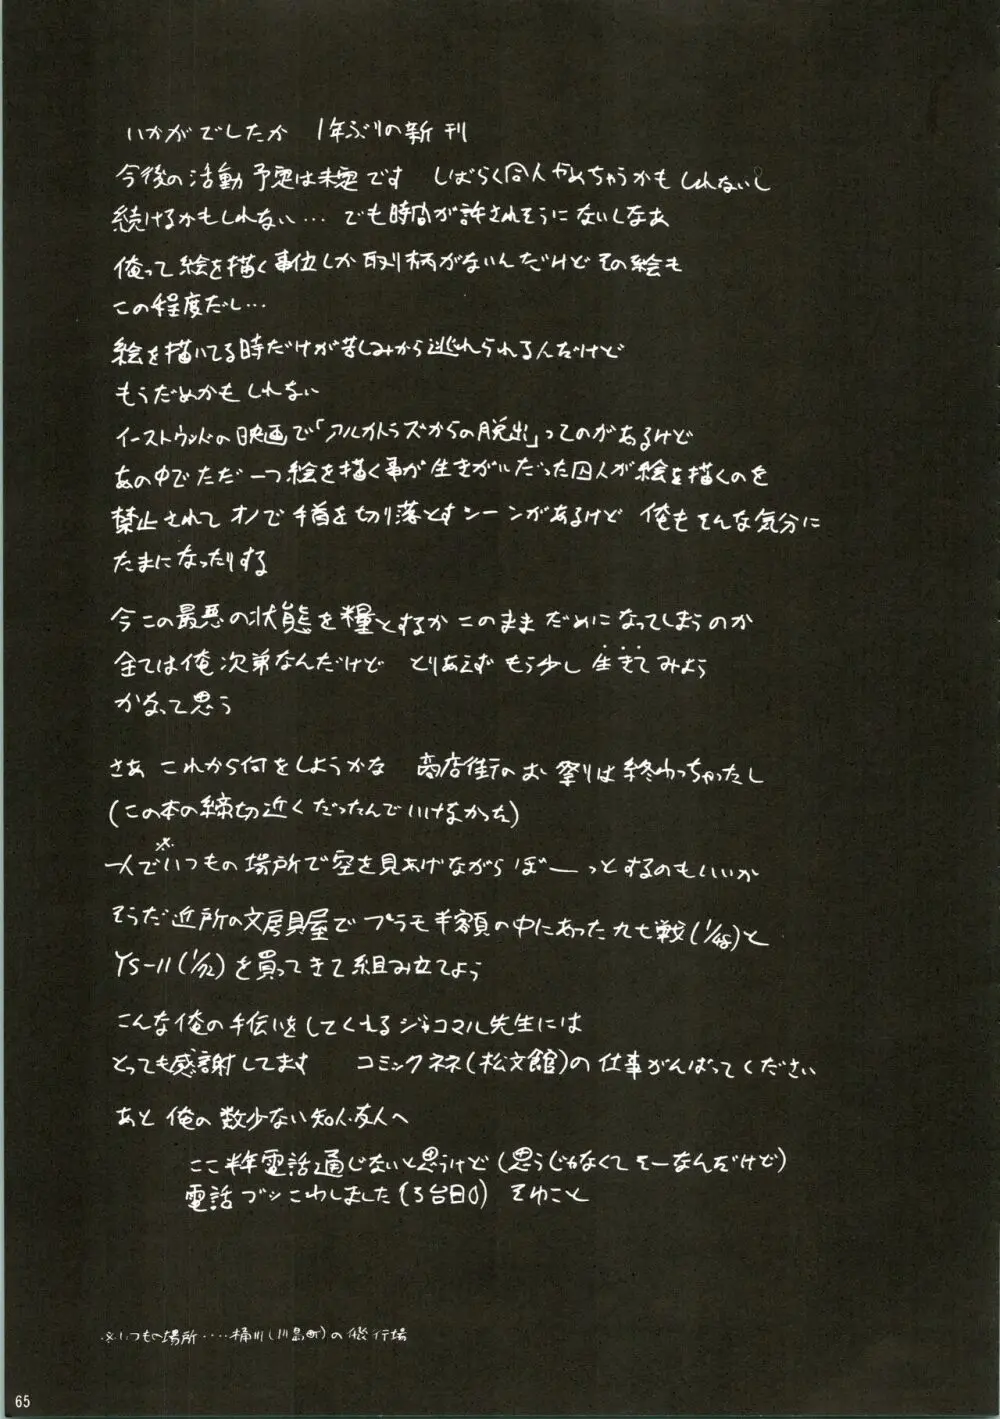 いかがでしたか　1年ぶりの新刊
今後の活動予定は未定です　しばらく同人やめちゃうかもしれないし
続けるかもしれない… でも時間が許されそうにないしなあ
俺って絵を描く事位しか取り柄がないんだけどその絵も
この程度だし…
絵を描いてる時だけが苦しみから逃れられる人だけど
もうだめかもしれない
イーストウッドの映画で「アルカトラズからの脱出」ってのがあるけど
あの中でただ一つ絵を描く事が生きがいだった囚人が絵を描くのを
禁止されてオノで手首を切り落とすシーンがあるけど 俺もそんな気分に
たまになったりする
今この最悪の状態を糧とするかこのままだめになってしまうのか
全ては俺次第なんだけど　とりあえずもう少し生きてみよう
かなって思う
さあ これから何をしようかな　商店街のお祭りは終わっちゃったし
(この本の締切近くだったんでいけなかった)
一人で※いつもの場所で空を見あげながらぼーーっとするのもいいか
そうだ近所の文房具屋でプラモ半額の中にあった九七戦(1/48)と
YS-11(1/72)を買ってきて組み立てよう
こんな俺の手伝いをしてくれるジャコマル先生には
とっても感謝してます　コミックネネ(松文館)の仕事がんばってください
あと 俺の数少ない知人・友人へ
ここ半年電話通じないと思うけど(思うじゃなくてそーなんだけど)
電話ブッこわしました(3台目) そゆこと
※いつもの場所‥‥桶川(川島町)の飛行場
65